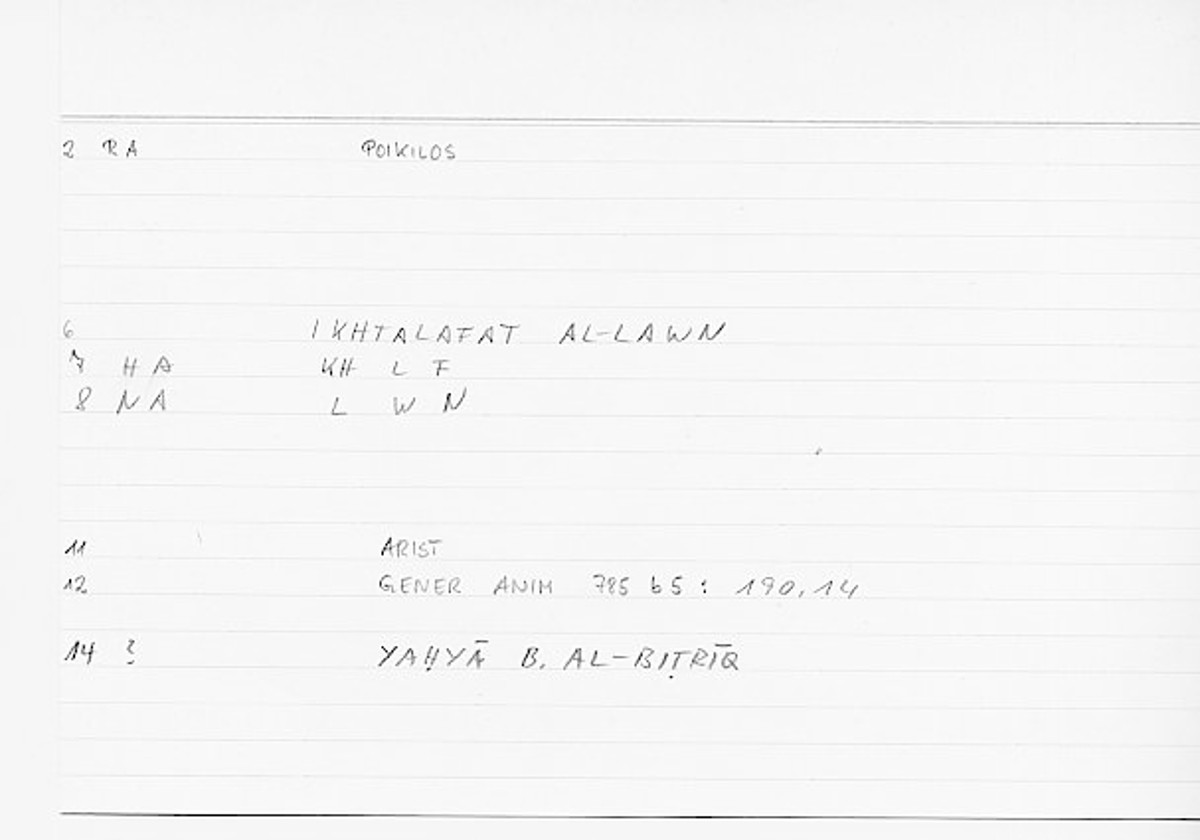 2 RA POIKILOS
6 IKHTALAFAT AL-LAWN
7 HA KH L F
8 NA L W N
11 ARIST
12 GENER ANIM 785 b5 : 190,14
14 ? YAḤYĀ B. AL-BIṬRĪQ